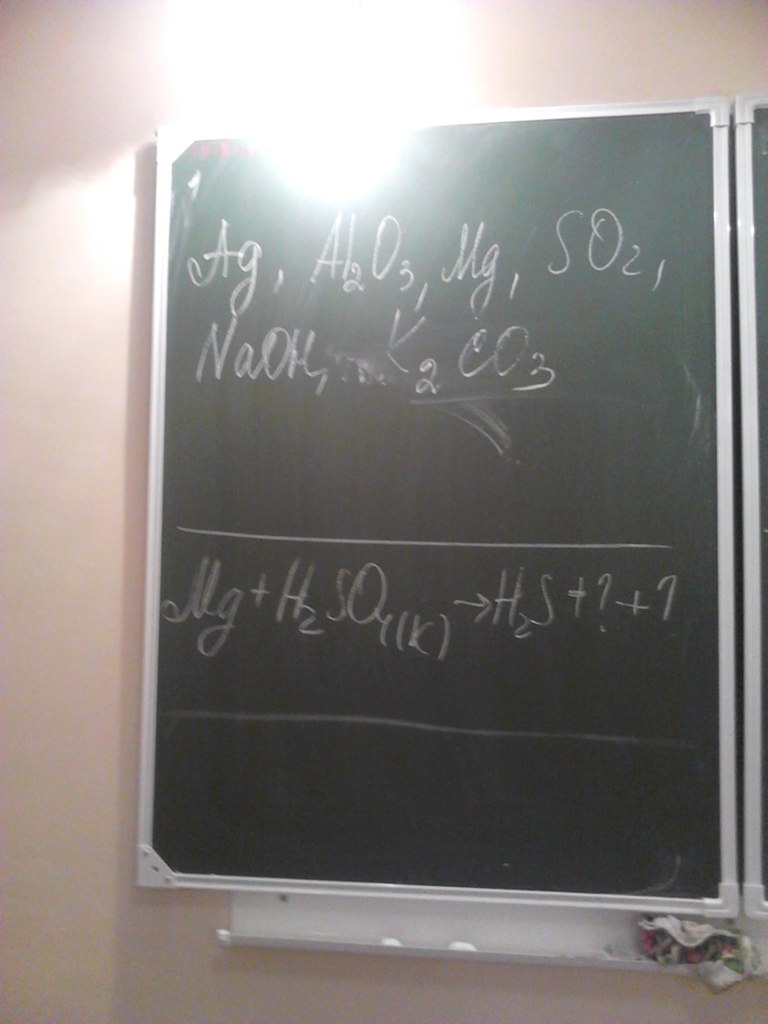 Ag, Al₂O₃, Mg, SO₂,
NaOH, K₂CO₃
Mg + H₂SO₄(к) → H₂S + ? + ?